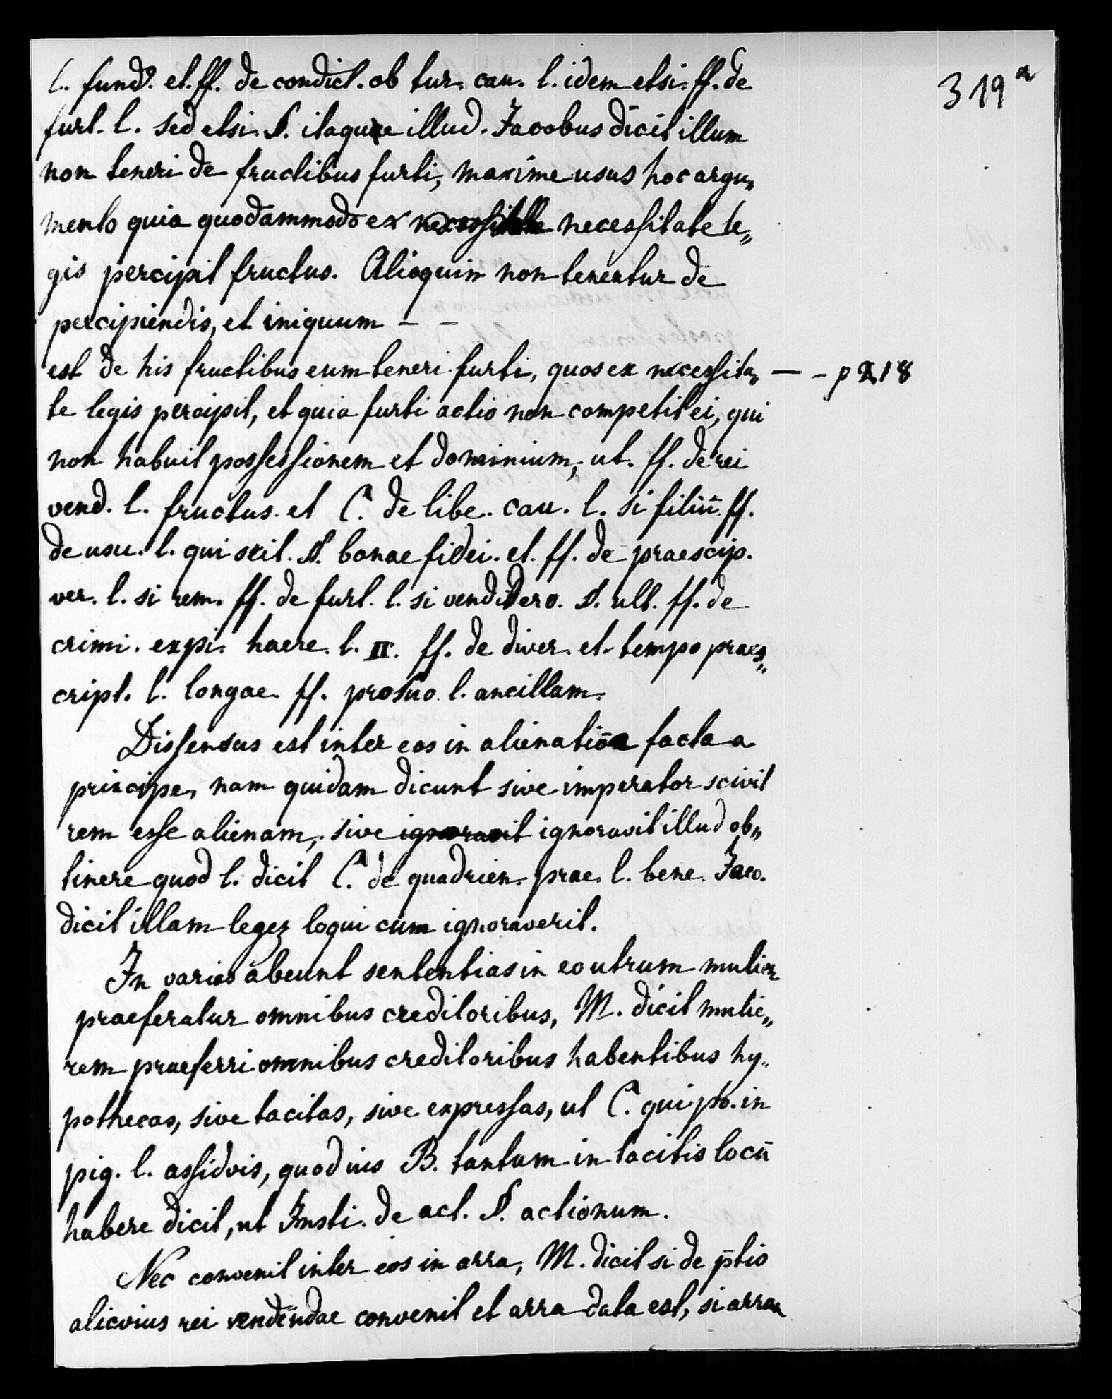 319a
l. fundº. et. ff. de condict. ob tur. cau. l. idem etsi. ff. de
furt. l. sed etsi. §. itaque illud. Jacobus dicit illum
non teneri de fructibus furti, maxime usus hoc argu„
mento quia quodammodo ex necessitate le„
gis percipit fructus. Alioquin non tenentur de
percipiendis, et iniquum – –
est de his fructibus eum teneri furti, quos ex necessita„ — - p 218
te legis percipit, et quia furti actio non competit ei, qui
non habuit possessionem et dominium, ut. ff. de rei
vend. l. fructus. et C. de libe. cau. l. si filiū. ff.
de usu. l. qui scit. §. bonae fidei. et. ff. de praescip.
ver. l. si rem. ff. de furt. l. si vendidero. §. ult. ff. de
crimi. expi. haere. l. II. ff. de diver. et. tempo praes„
cript. l. longae. ff. pro suo. l. ancillam.
Dissensus est inter eos in alienatiōe facta a
principe, nam quidam dicunt sive imperator scivit
rem esse alienam, sive ignoravit illud ob„
tinere quod l. dicit C. de quadrien. prae. l. bene. Jaco.
dicit illam legez loqui cum ignoraverit.
In varias abeunt sententias in eo utrum mulier
praeferatur omnibus creditoribus, M. dicit mulie„
rem praeferri omnibus creditoribus habentibus hy„
pothecas, sive tacitas, sive expressas, ut C. qui po. in
pig. l. assidvis, quod ius B. tantum in tacitis locū
habere dicit, ut Insti. de act. §. actionum.
Nec convenit inter eos in arra, M. dicit si de p̄tio
alicvius rei vendendae convenit et arra data est, si arram